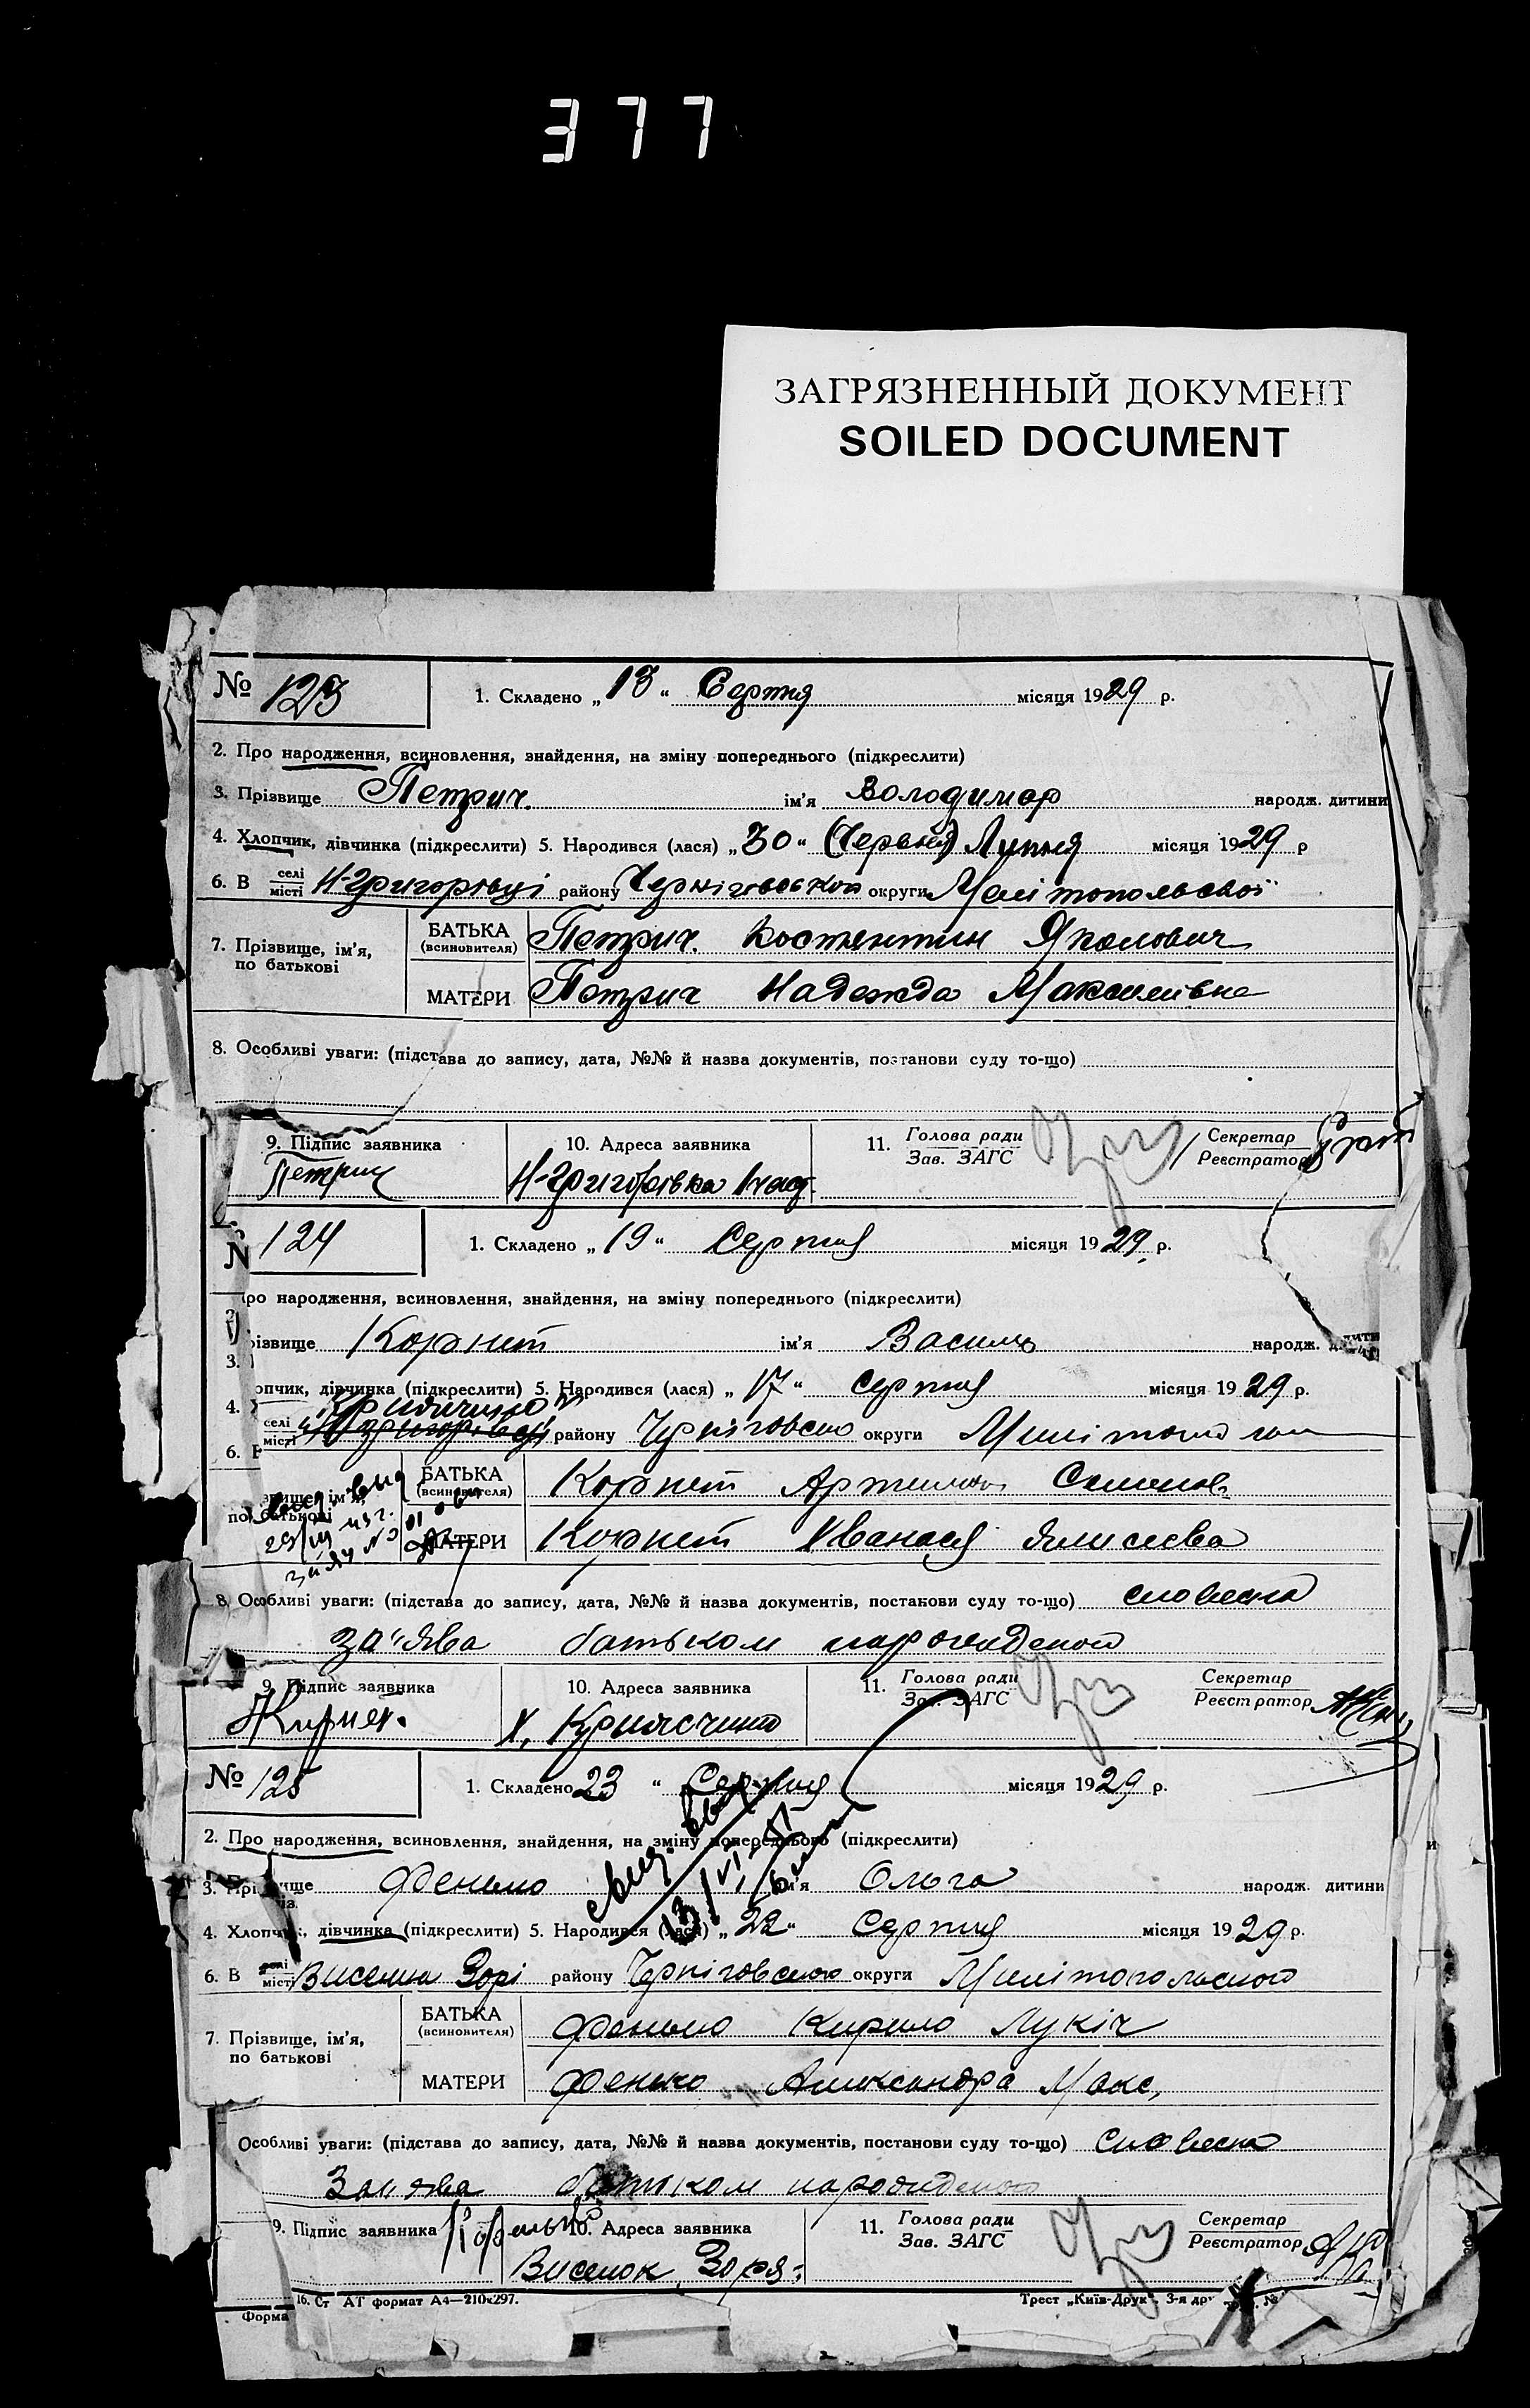 377
ЗАГРЯЗНЕННЫЙ ДОКУМЕНТ
SOILED DOCUMENT
№ 123
1. Складено „13“ Серпня місяця 1929 р.
2. Про народження, всиновлення, знайдення, на зміну попереднього (підкреслити)
3. Прізвище Петрич. ім'я Володимар народж. дитини
4. Хлопчик, дівчинка (підкреслити) 5. Народився (лася) „30“ (Червня) Липня місяця 1929 р
6. В селі місті Н-Григорівці району Черніговської округи Мелітопольської
7. Прізвище, ім'я, по батькові
БАТЬКА (всиновителя) Петрич. Костянтин Яковлович
МАТЕРИ Петрич Надежда Максимівна
8. Особливі уваги: (підстава до запису, дата, №№ й назва документів, постанови суду то-що)
9. Підпис заявника 10. Адреса заявника 11. Голова ради Зав. ЗАГС Секретар Реєстратор
Петрич Н-Григорівка
N 124
1. Складено „19“ Серпня місяця 1929 р.
ро народження, всиновлення, знайдення, на зміну попереднього (підкреслити)
різвище Корнет ім'я Василь народж.
опчик, дівчинка (підкреслити) 5. Народився (лася) „17“ серпня місяця 1929 р.
6. селі місті району Черніговсько округи
БАТЬКА (всиновителя) Корнет Семенов
МАТЕРИ Корнет
8. Особливі уваги: (підстава до запису, дата, №№ й назва документів, постанови суду то-що) словесна
за'ява батьком народженой
9. Підпис заявника 10. Адреса заявника 11. Голова ради Зав. ЗАГС Секретар Реєстратор
№ 125
1. Складено 23 “ Серпня місяця 1929 р.
2. Про народження, всиновлення, знайдення, на зміну попереднього (підкреслити)
3. Фенько ім'я Ольга народж. дитини
4. Хлопч дівчинка (підкреслити) 5. Народився (лася) „22“ Серпня місяця 1929 р.
6. В селі місті Висенка Зорі району Черніговського округи Мелітопольского
7. Прізвище, ім'я, по батькові
БАТЬКА (всиновителя) Фенько Кирило Лукіч
МАТЕРИ Фенько Александра Макс,
Особливі уваги: (підстава до запису, дата, №№ й назва документів, постанови суду то-що) словесна
Заиява батьком народиденого
9. Підпис заявника 10. Адреса заявника 11. Голова ради Зав. ЗАГС Секретар Реєстратор
Виселок Зоря
Форма 16. Ст АТ формат А4—210х297. Трест „Київ-Друк“. 3-я